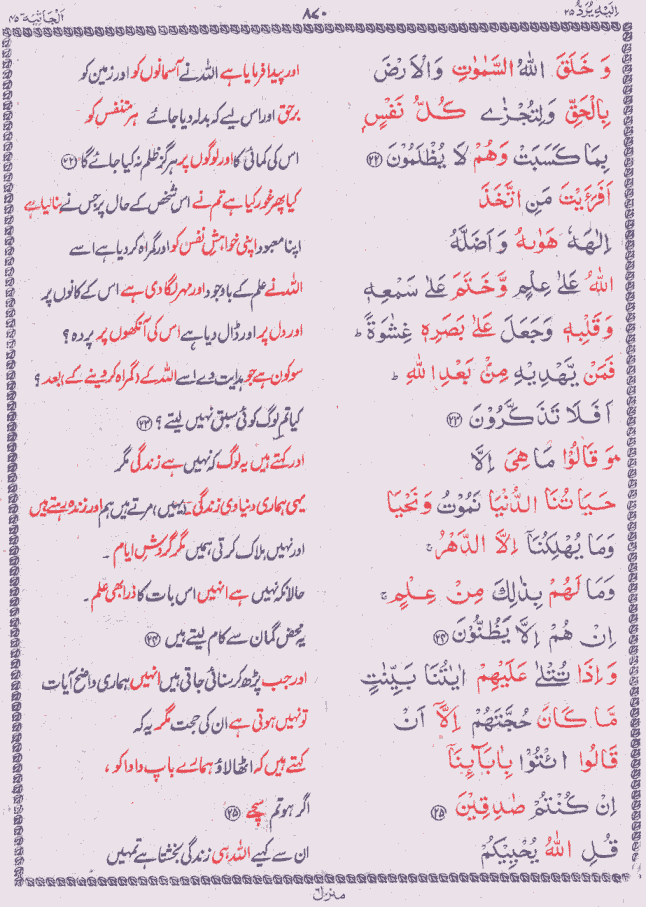 اِلَيْهِ يُرَدُّ ٢٥
٨٧٠
اَلْجَاثِيَة ٤٥
وَ خَلَقَ اللّٰهُ السَّمٰوٰتِ وَالْاَرْضَ
اور پیدا فرمایا ہے اللہ نے آسمانوں کو اور زمین کو
بِالْحَقِّ وَلِتُجْزٰى كُلُّ نَفْسٍۭ
برحق اور اس لیے کہ بدلہ دیا جائے ہر متنفس کو
بِمَا كَسَبَتْ وَهُمْ لَا يُظْلَمُوْنَ ﴿٢٢﴾
اس کی کمائی کا اور لوگوں پر ہرگز ظلم نہ کیا جائے گا ﴿٢٢﴾
اَفَرَءَيْتَ مَنِ اتَّخَذَ
کیا پھر غور کیا ہے تم نے اس شخص کے حال پر جس نے بنا لیا ہے
اِلٰهَهٗ هَوٰىهُ وَ اَضَلَّهُ
اپنا معبود اپنی خواہشِ نفس کو اور گمراہ کر دیا ہے اسے
اللّٰهُ عَلٰى عِلْمٍ وَّخَتَمَ عَلٰى سَمْعِهٖ
اللہ نے علم کے باوجود اور مہر لگا دی ہے اس کے کانوں پر
وَقَلْبِهٖ وَجَعَلَ عَلٰى بَصَرِهٖ غِشٰوَةً ؕ
اور دل پر اور ڈال دیا ہے اس کی آنکھوں پر پردہ ؟
فَمَنْ يَّهْدِيْهِ مِنْۢ بَعْدِ اللّٰهِ ؕ
سو کون ہے جو ہدایت دے اسے اللہ کے (گمراہ کر دینے کے) بعد ؟
اَفَلَا تَذَكَّرُوْنَ ﴿٢٣﴾
کیا تم لوگ کوئی سبق نہیں لیتے ؟ ﴿٢٣﴾
وَقَالُوْا مَا هِىَ اِلَّا
اور کہتے ہیں یہ لوگ کہ نہیں ہے زندگی مگر
حَيَاتُنَا الدُّنْيَا نَمُوْتُ وَنَحْيَا
یہی ہماری دنیاوی زندگی (یہیں) مرتے ہیں ہم اور زندہ رہتے ہیں
وَمَا يُهْلِكُنَاۤ اِلَّا الدَّهْرُ ۚ
اور نہیں ہلاک کرتی ہمیں مگر گردشِ ایام ۔
وَمَا لَهُمْ بِذٰلِكَ مِنْ عِلْمٍ ۚ
حالانکہ نہیں ہے انہیں اس بات کا ذرا بھی علم ۔
اِنْ هُمْ اِلَّا يَظُنُّوْنَ ﴿٢٤﴾
یہ محض گمان سے کام لیتے ہیں ﴿٢٤﴾
وَاِذَا تُتْلٰى عَلَيْهِمْ اٰيٰتُنَا بَيِّنٰتٍ
اور جب پڑھ کر سنائی جاتی ہیں انہیں ہماری واضح آیات
مَّا كَانَ حُجَّتَهُمْ اِلَّاۤ اَنْ
تو نہیں ہوتی ہے ان کی حجت مگر یہ کہ
قَالُوا ائْتُوْا بِاٰبَآئِنَاۤ
کہتے ہیں کہ اٹھا لاؤ ہمارے باپ دادا کو ،
اِنْ كُنْتُمْ صٰدِقِيْنَ ﴿٢٥﴾
اگر ہو تم سچے ﴿٢٥﴾
قُلِ اللّٰهُ يُحْيِيْكُمْ
ان سے کہیے اللہ ہی زندگی بخشتا ہے تمہیں
منزل